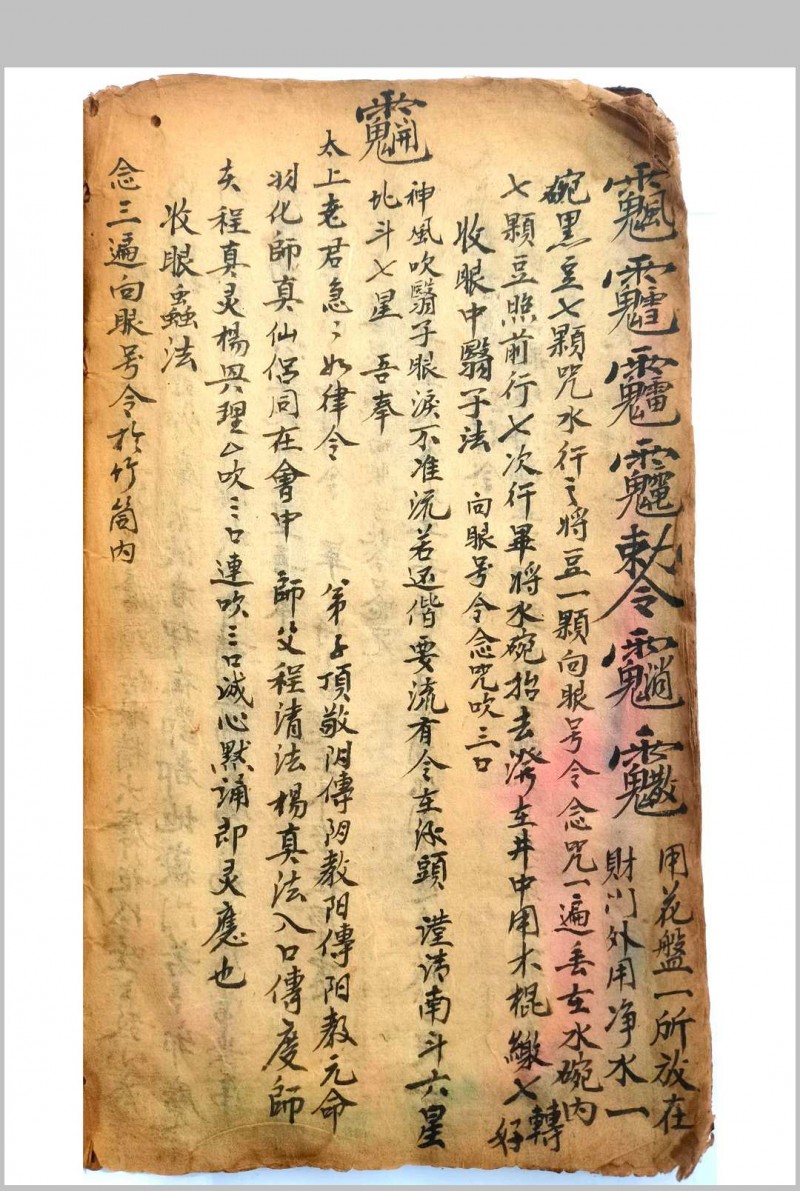 敕令
用花盤一所放在
財門外用净水一
碗黑豆七顆咒水行之將豆一顆向眼号令念咒一遍丢在水碗内
七顆豆照前行七次行畢將水碗抬去潑在井中用木棍繳七轉好
收眼中翳子法 向眼号令念咒吹三口
神風吹翳子眼淚不准流若还偕要流有令在頭 謹請南斗六星
北斗七星 吾奉
太上老君急〻如律令 弟子頂敬阴傳阴教阳傳阳教元命
羽化師真仙侣同在會中 師父程清法楊真法入口傳度師
程真灵楊興理 吹三口連吹三口誠心默誦即灵應也
收眼蟲法
念三遍向眼号令於竹筒内